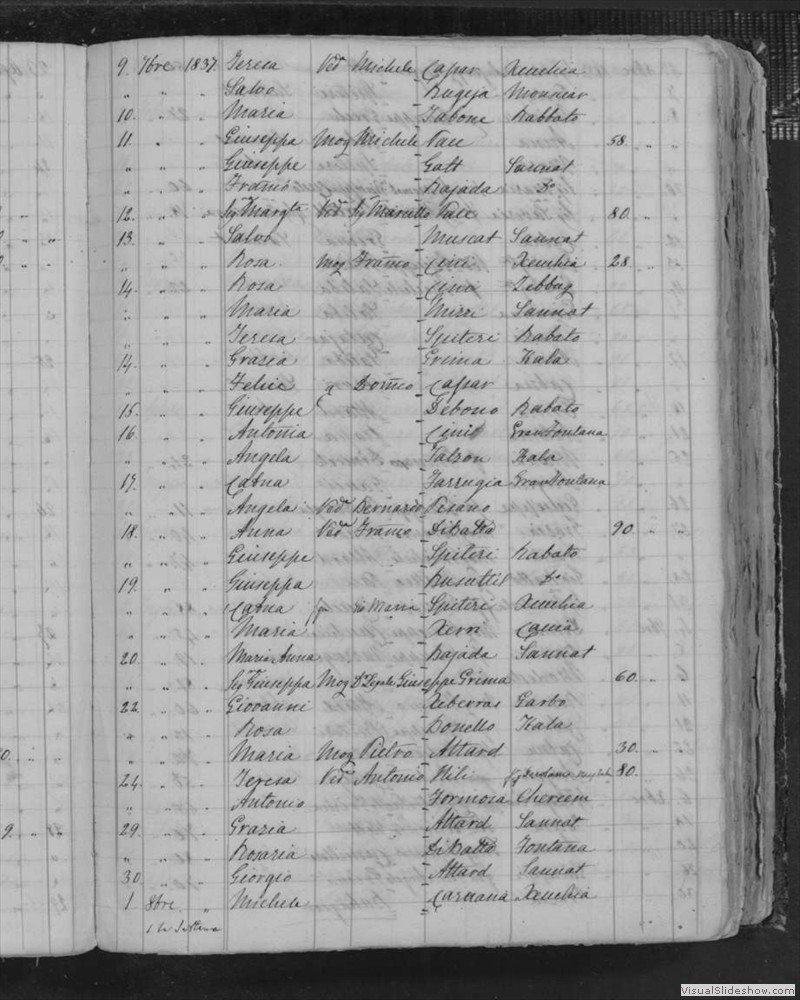 9. 7bre 1837. Teresa Ved Michele Capar Xeuchia
" " " Salvo Bugeja Mounxar
10. " " Maria Tabone Rabbato
11. " " Giuseppa Mog Michele Pace 58. " "
" " " Giuseppe Gatt Sannat
" " " Franco Bajada Do
12. " " Sig Margta Ved Sig Pace 80. " "
13. " " Salvo Muscat Sannat
" " " Rosa Mog Franco Cini Xeuchia 28 " "
14. " " Rosa Cini Zebbug
" " " Maria Mizzi Sannat
" " " Teresa Spiteri Rabato
14. " " Grazia Grima Kala
" " " Felice q Domco Capar
15. " " Giuseppe Debono Rabato
16. " " Antonia Gran Fontana
" " " Angela Falzon Kala
17. " " Catna Farrugia Gran Fontana
" " " Angela Veda Bernardo Pisano
18. " " Anna Veda Franco DiBatto 90. " "
" " " Giuseppe Spiteri Rabato
19. " " Giuseppa Busuttil Do
" " " Catna Maria Spiteri Xeuchia
" " " Maria Xerri Caccia
20. " " Maria Anna Bajada Sannat
" " " Sig Giuseppa Mog Giuseppe Grima 60. " "
22. " " Giovanni Xiberras Garbo
" " " Rosa Bonello Kala
" " " Maria Mog Pietro Attard 30. " "
24. " " Teresa Veda Antonio 80. " "
" " " Antonio Formosa Chercem
29. " " Grazia Attard Sannat
" " " Rosaria DiBatto Fontana
30. " " Giorgio Attard Sannat
1 8bre " Michele Caruana Xeuchia
VisualSlideshow.com